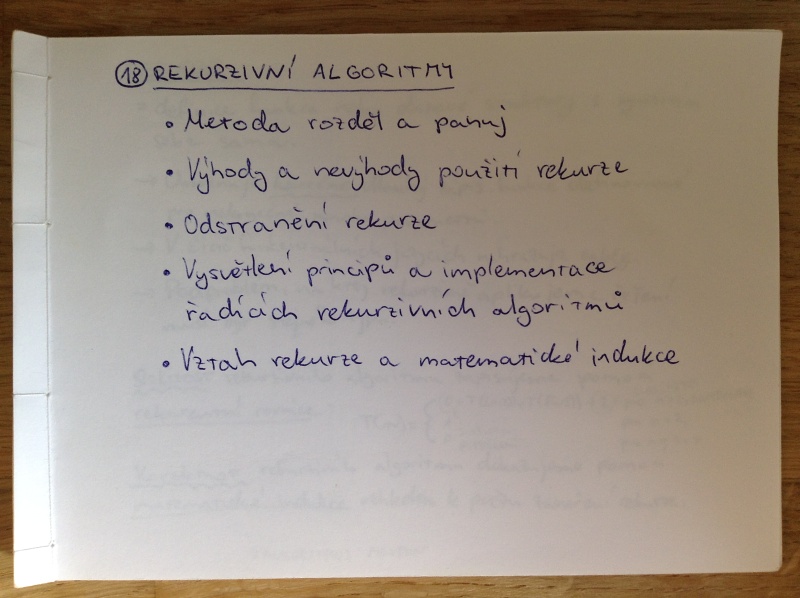 18 REKURZIVNÍ ALGORITMY
• Metoda rozděl a panuj
• Výhody a nevýhody použití rekurze
• Odstranění rekurze
• Vysvětlení principů a implementace
řadících rekurzivních algoritmů
• Vztah rekurze a matematické indukce